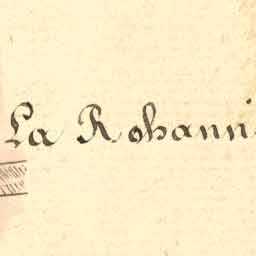 La Rohanni